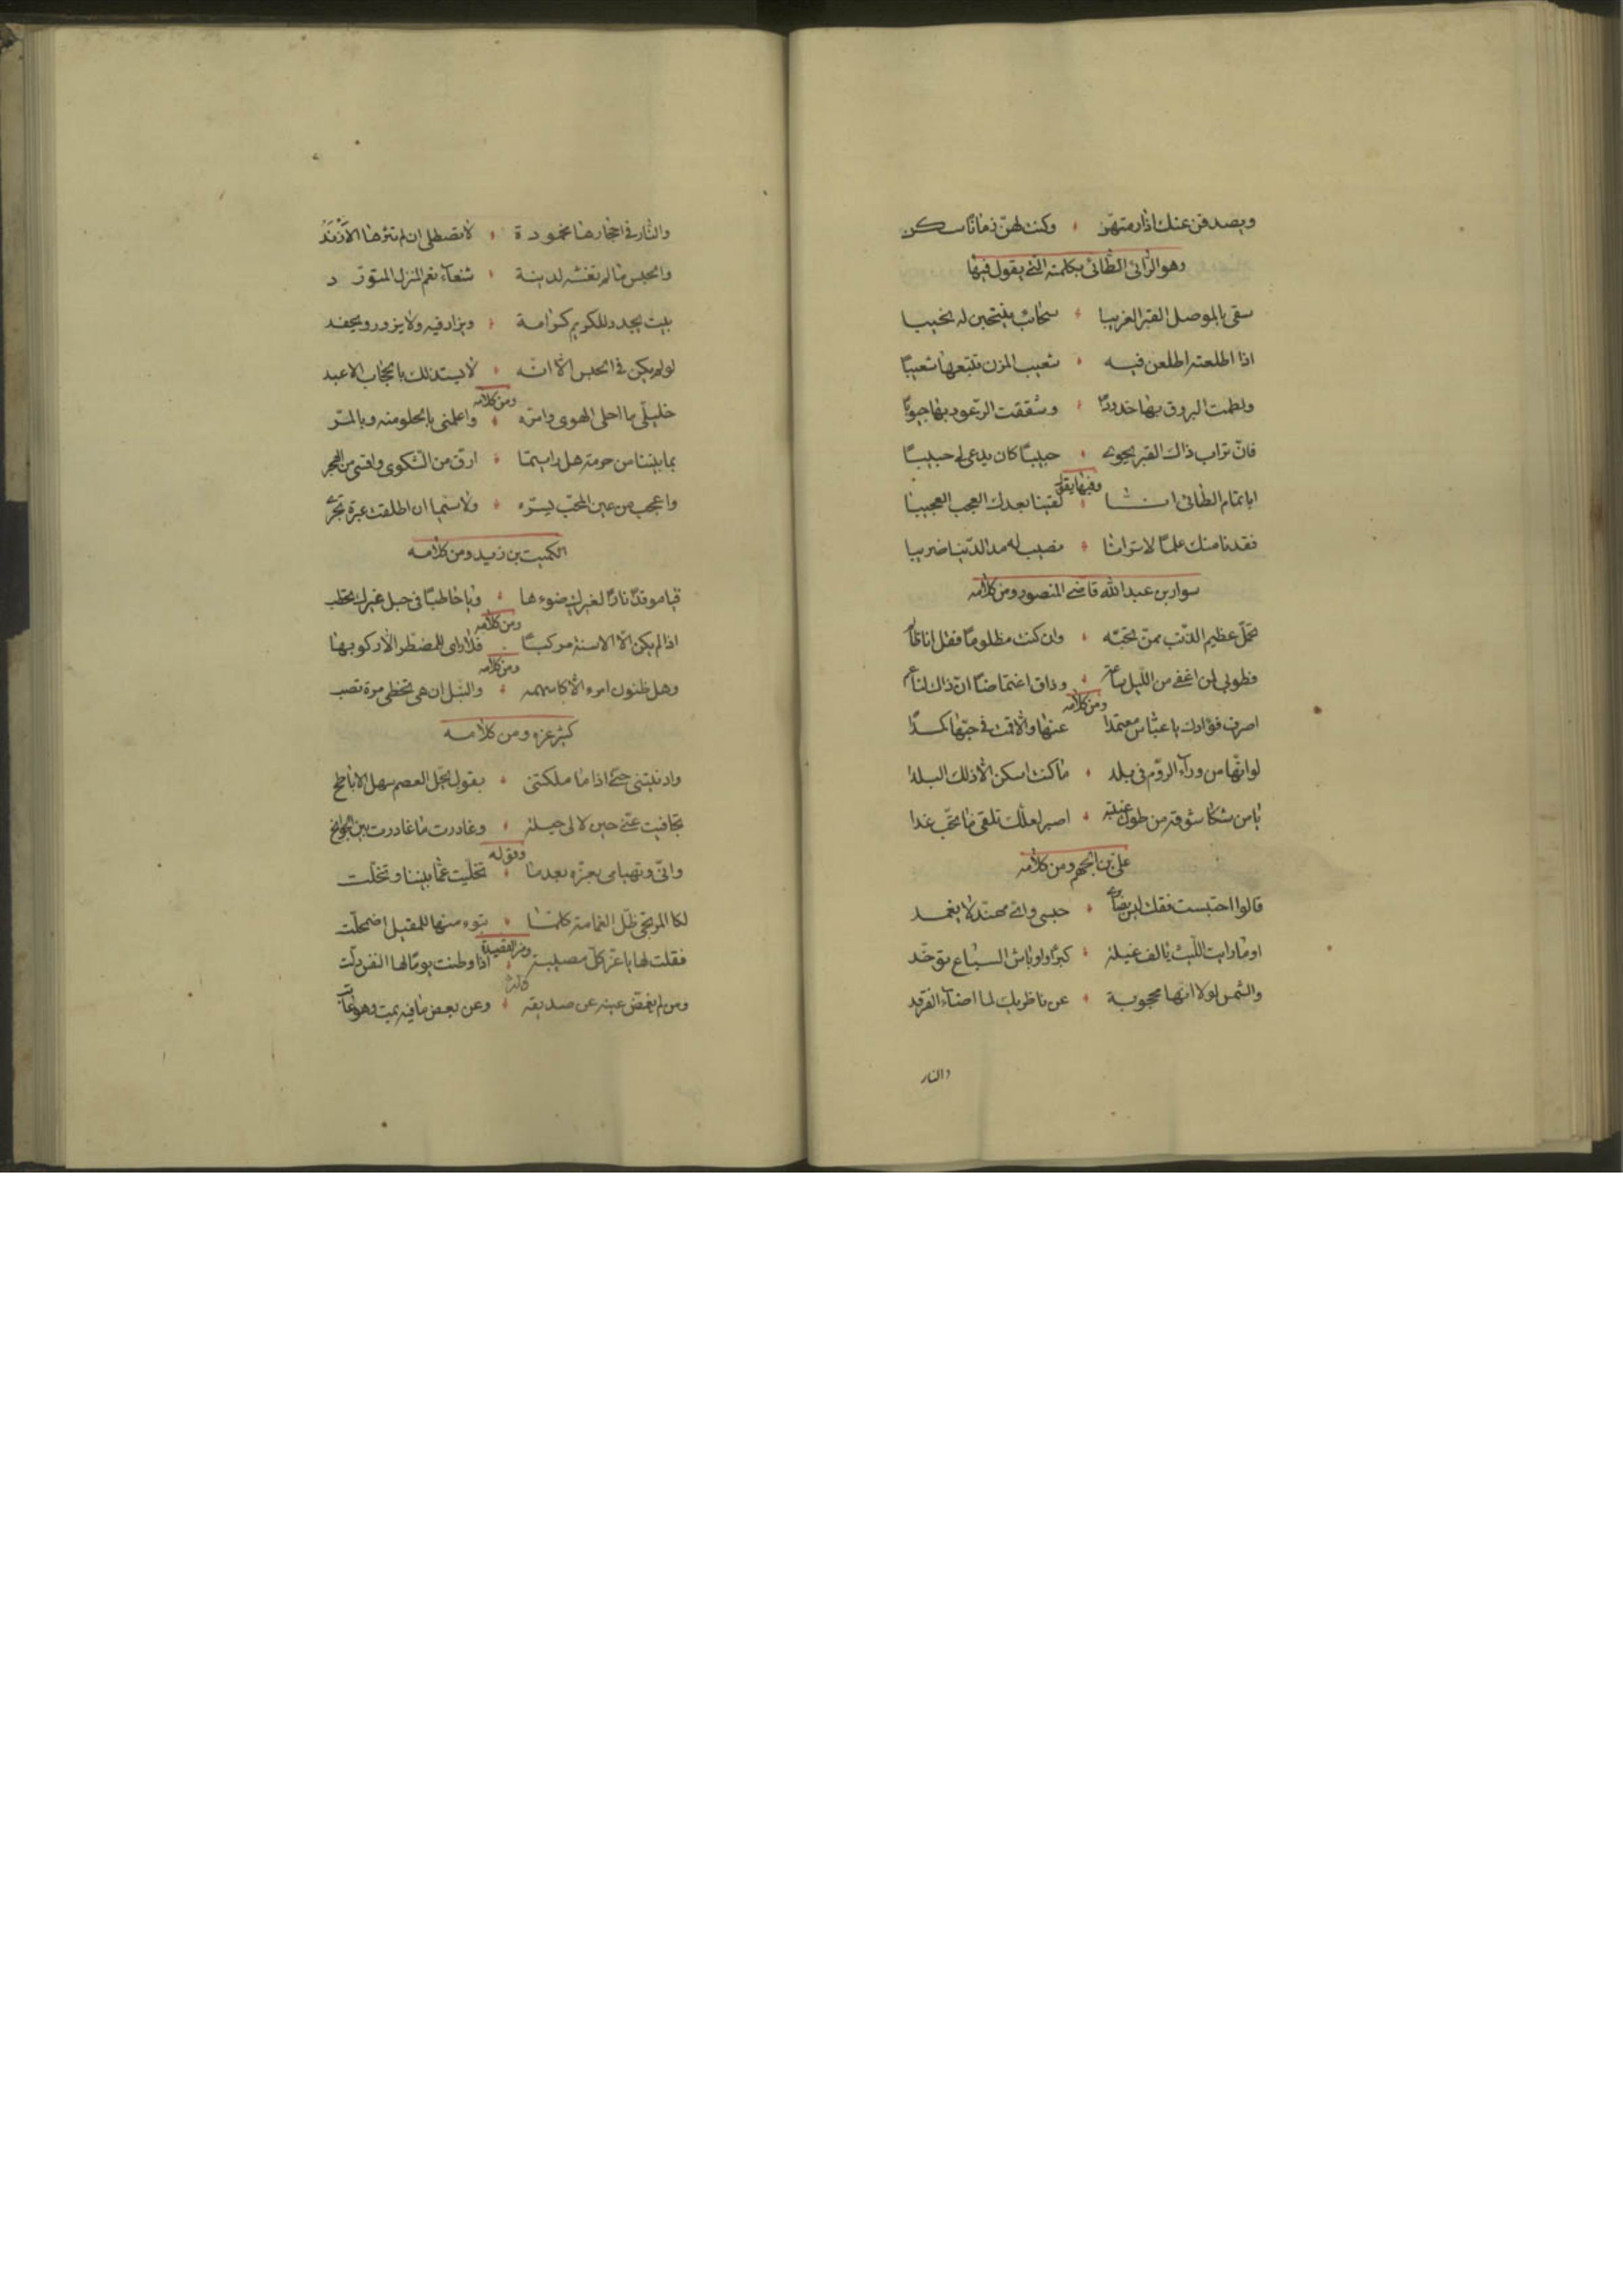 ويصدفن عنك اذا رمتهن وكنت لهن زمانا سكن
وهو الراثى الطائى بكلمته التى يقول فيها
سقى بالموصل القبر الغريبا سحائب ينتحبن له نحيبا
اذا اطلعنه اطلعن فيه شعيب المزن تتبعها شعيبا
ولطمت البروق بها خدودا وشققت الرعود بها جيوبا
فان تراب ذاك القبر يحوى حبيبا كان يدعى لى حبيبا
وفيها يقول
ابا تمام الطائى لقينا بعدك العجب العجيبا
فقدنا منك علما لا ترانا نصيب له مدا الدنيا ضريبا
سوار بن عبد الله قاضى المنصور ومن كلامه
تحمل عظيم الذنب ممن تحبه وان كنت مظلوما فقل انا ظالم
فطوبى لمن اغفى من الليل ساعة وذاق اغتماضا ان ذاك لناعم
ومن كلامه
اصرف فؤادك يا عباس معتمدا عنها والا فمت فى حبها كمدا
لو انها من وراء الروم فى بلد ما كنت اسكن الا ذلك البلدا
يا من شكا شوقه من طول غيبته اصبر لعلك تلقى ما تحب غدا
على بن الجهم ومن كلامه
قالوا احتبست فقلت ليس بضائرى حبسى واى مهند لا يغمد
اوما رايت الليث يالف غيله كبرا واوباش السباع توحد
والشمس لولا انها محجوبة عن ناظريك لما اضاء الفرقد
والنار
والنار فى احجارها مخمودة لا تصطلى ان لم تثرها الازند
والحبس ما لم تغشه لدنية شنعاء نعم المنزل المتورد
بيت يجدد للكريم كرامة ويزار فيه ولا يزور ويحفد
لو لم يكن فى الحبس الا انه لا يستذلك بالحجاب الاعبد
ومن كلامه
خليلى ما احلى الهوى وامره واعلمنى بالحلو منه وبالمر
بما بيننا من حرمة هل رايتما ارق من الشكوى واقسى من الهجر
واعجب من عين المحب بسره ولا سيما ان اطلقت عبرة تجرى
الكميت بن زيد ومن كلامه
فيا موقدا نارا لغيرك ضوءها ويا حاطبا فى حبل غيرك تحطب
ومن كلامه
اذا لم يكن الا الاسنة مركبا فلا راى للمضطر الا ركوبها
ومن كلامه
وهل ظنون امرء الا كاسهمه والنبل ان هى تخطى مرة تصب
كثير عزه ومن كلامه
وادنيتنى حتى اذا ما ملكتنى بقول يحل العصم سهل الاباطح
تجافيت عنى حين لا لى حيلة وغادرت ما غادرت بين الجوانح
وقوله
وانى وتهيامى بعزه بعدما تخليت عما بيننا وتخلت
لكا المرتجى ظل الغمامة كلما تبوء منها للمقيل اضمحلت
ومن القصيدة
فقلت لها يا عز كل مصيبة اذا وطنت يوما لها النفس ذلت
ومن لم يغمض عينه عن صديقه وعن بعض ما فيه يمت وهو عاتب